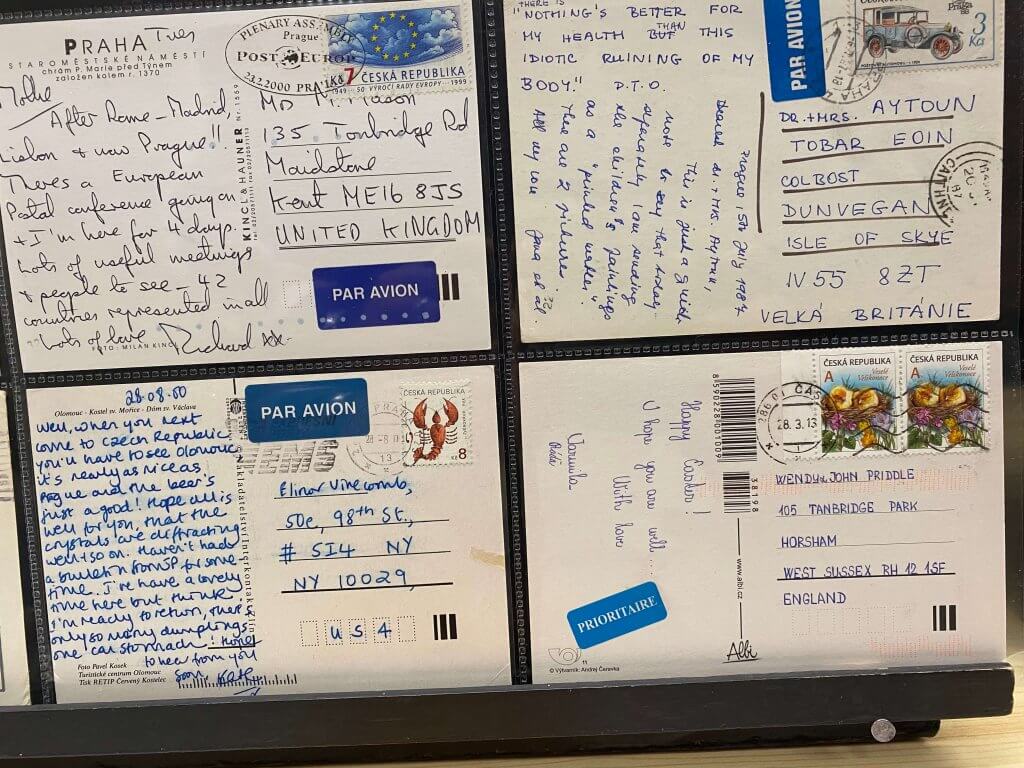 PRAHA Tues
STAROMĚSTSKÉ NÁMĚSTÍ
chrám P. Marie před Týnem
založen kolem r. 1370
Mollie
After Rome - Madrid,
Lisbon & now Prague!!
There's a European
Postal conference going on
& I'm here for 4 days.
Lots of useful meetings
& people to see - 42
countries represented in all
Lots of love
Richard xx-
FOTO: MILAN KINCL
KINCL & HAUNER
PLENARY ASSEMBLY
Prague
POST EUROP
23.2.2000 PRAHA
Kč 7 ČESKÁ REPUBLIKA
1949 - 50. VÝROČÍ RADY EVROPY - 1999
Mason
135 Tonbridge Rd
Maidstone
Kent ME16 8JS
UNITED KINGDOM
PAR AVION
"THERE IS
NOTHING'S BETTER FOR
MY HEALTH BUT THAN THIS
IDIOTIC RUINING OF MY
BODY." P.T.O.
Prague 15th July 1987
Dearest dr. + Mrs. Aytoun,
This is just a quick
note to say that today
separately I am sending
the children's paintings
as a "printed matter."
There are 22 pictures.
All my love
PAR AVION
3
Kčs
DR. + MRS. AYTOUN
TOBAR EOIN
COLBOST
DUNVEGAN
ISLE OF SKYE
IV55 8ZT
VELKÁ BRITÁNIE
28.08.00
Olomouc - Kostel sv. Mořice - Dóm sv. Václava
Well, when you next
come to Czech Republic
you'll have to see Olomouc
it's nearly as nice as
Prague and the beer's
just a good! Hope all is
well for you, that the
crystals are diffracting
well & so on. Haven't had
a bulletin from SP for some
time. I've have a lovely
time here but think
I'm ready to return, there's
only so many dumplings
one can stomach! Hope
to hear from you
soon, Kate
Foto Pavel Kosek
Turistické centrum Olomouc
Tisk RETIP Červený Kostelec
PAR AVION
EMS
ČESKÁ REPUBLIKA
8
Elinor Vinecomb,
50e, 98th St.,
# 5I4 NY
NY 10029,
USA
Happy Easter!
I hope you are well...
With love
Jarmila
8590228001001091
38198
www.albi.cz
Albi
PRIORITAIRE
11
© Výtvarník: Andrej Čerevka
ČESKÁ REPUBLIKA
A Veselé Velikonoce
ČESKÁ REPUBLIKA
A Veselé Velikonoce
28601 ČÁS
28.3.13
WENDY & JOHN PRIDDLE
105 TANBRIDGE PARK
HORSHAM
WEST SUSSEX RH 12 1SF
ENGLAND